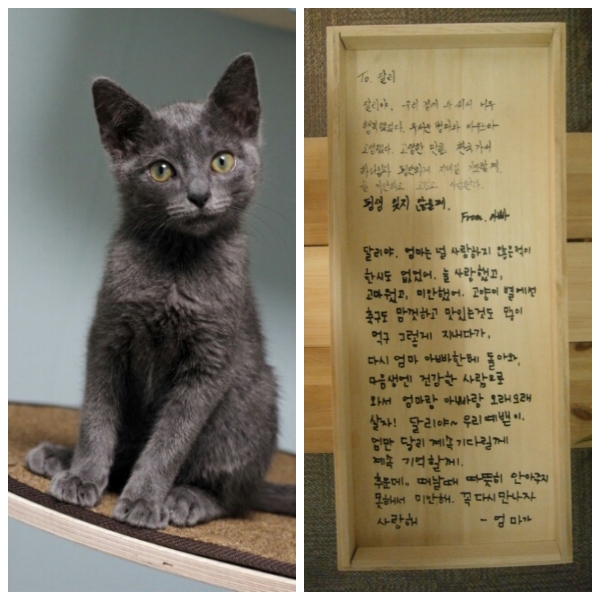 To. 달리
달리야. 우리 곁에 와 줘서 너무
행복했었다.
고생한 만큼
평생 잊지 않을께.
From. 아빠
달리야. 엄마는 널 사랑하지 않은적이
한시도 없었어. 늘 사랑했고,
고마웠고, 미안했어. 고양이 별에선
축구도 맘껏하고 맛있는것도 많이
먹구 그렇게 지내다가,
다시 엄마 아빠한테 돌아와,
다음생엔 건강한 사람으로
와서 엄마랑 아빠랑 오래오래
살자! 달리야~ 우리 예쁜이.
엄만 달리 계속 기다릴께
계속 기억할께.
추운데. 떠날때 따뜻히 안아주지
못해서 미안해. 꼭 다시 만나자
사랑해 - 엄마가